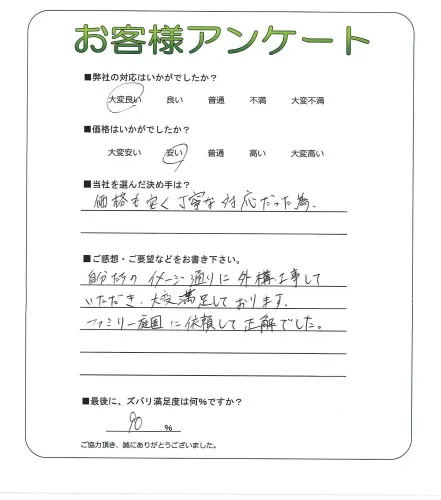 お客様アンケート
■弊社の対応はいかがでしたか?
大変良い 良い 普通 不満 大変不満
■価格はいかがでしたか?
大変安い 安い 普通 高い 大変高い
■当社を選んだ決め手は?
価格も安く丁寧な対応だった為.
■ご感想・ご要望などをお書き下さい。
自分たちのイメージ通りに外構工事して
いただき、大変満足しております。
ファミリー庭園に依頼して正解でした。
■最後に、ズバリ満足度は何%ですか?
90 %
ご協力頂き、誠にありがとうございました。